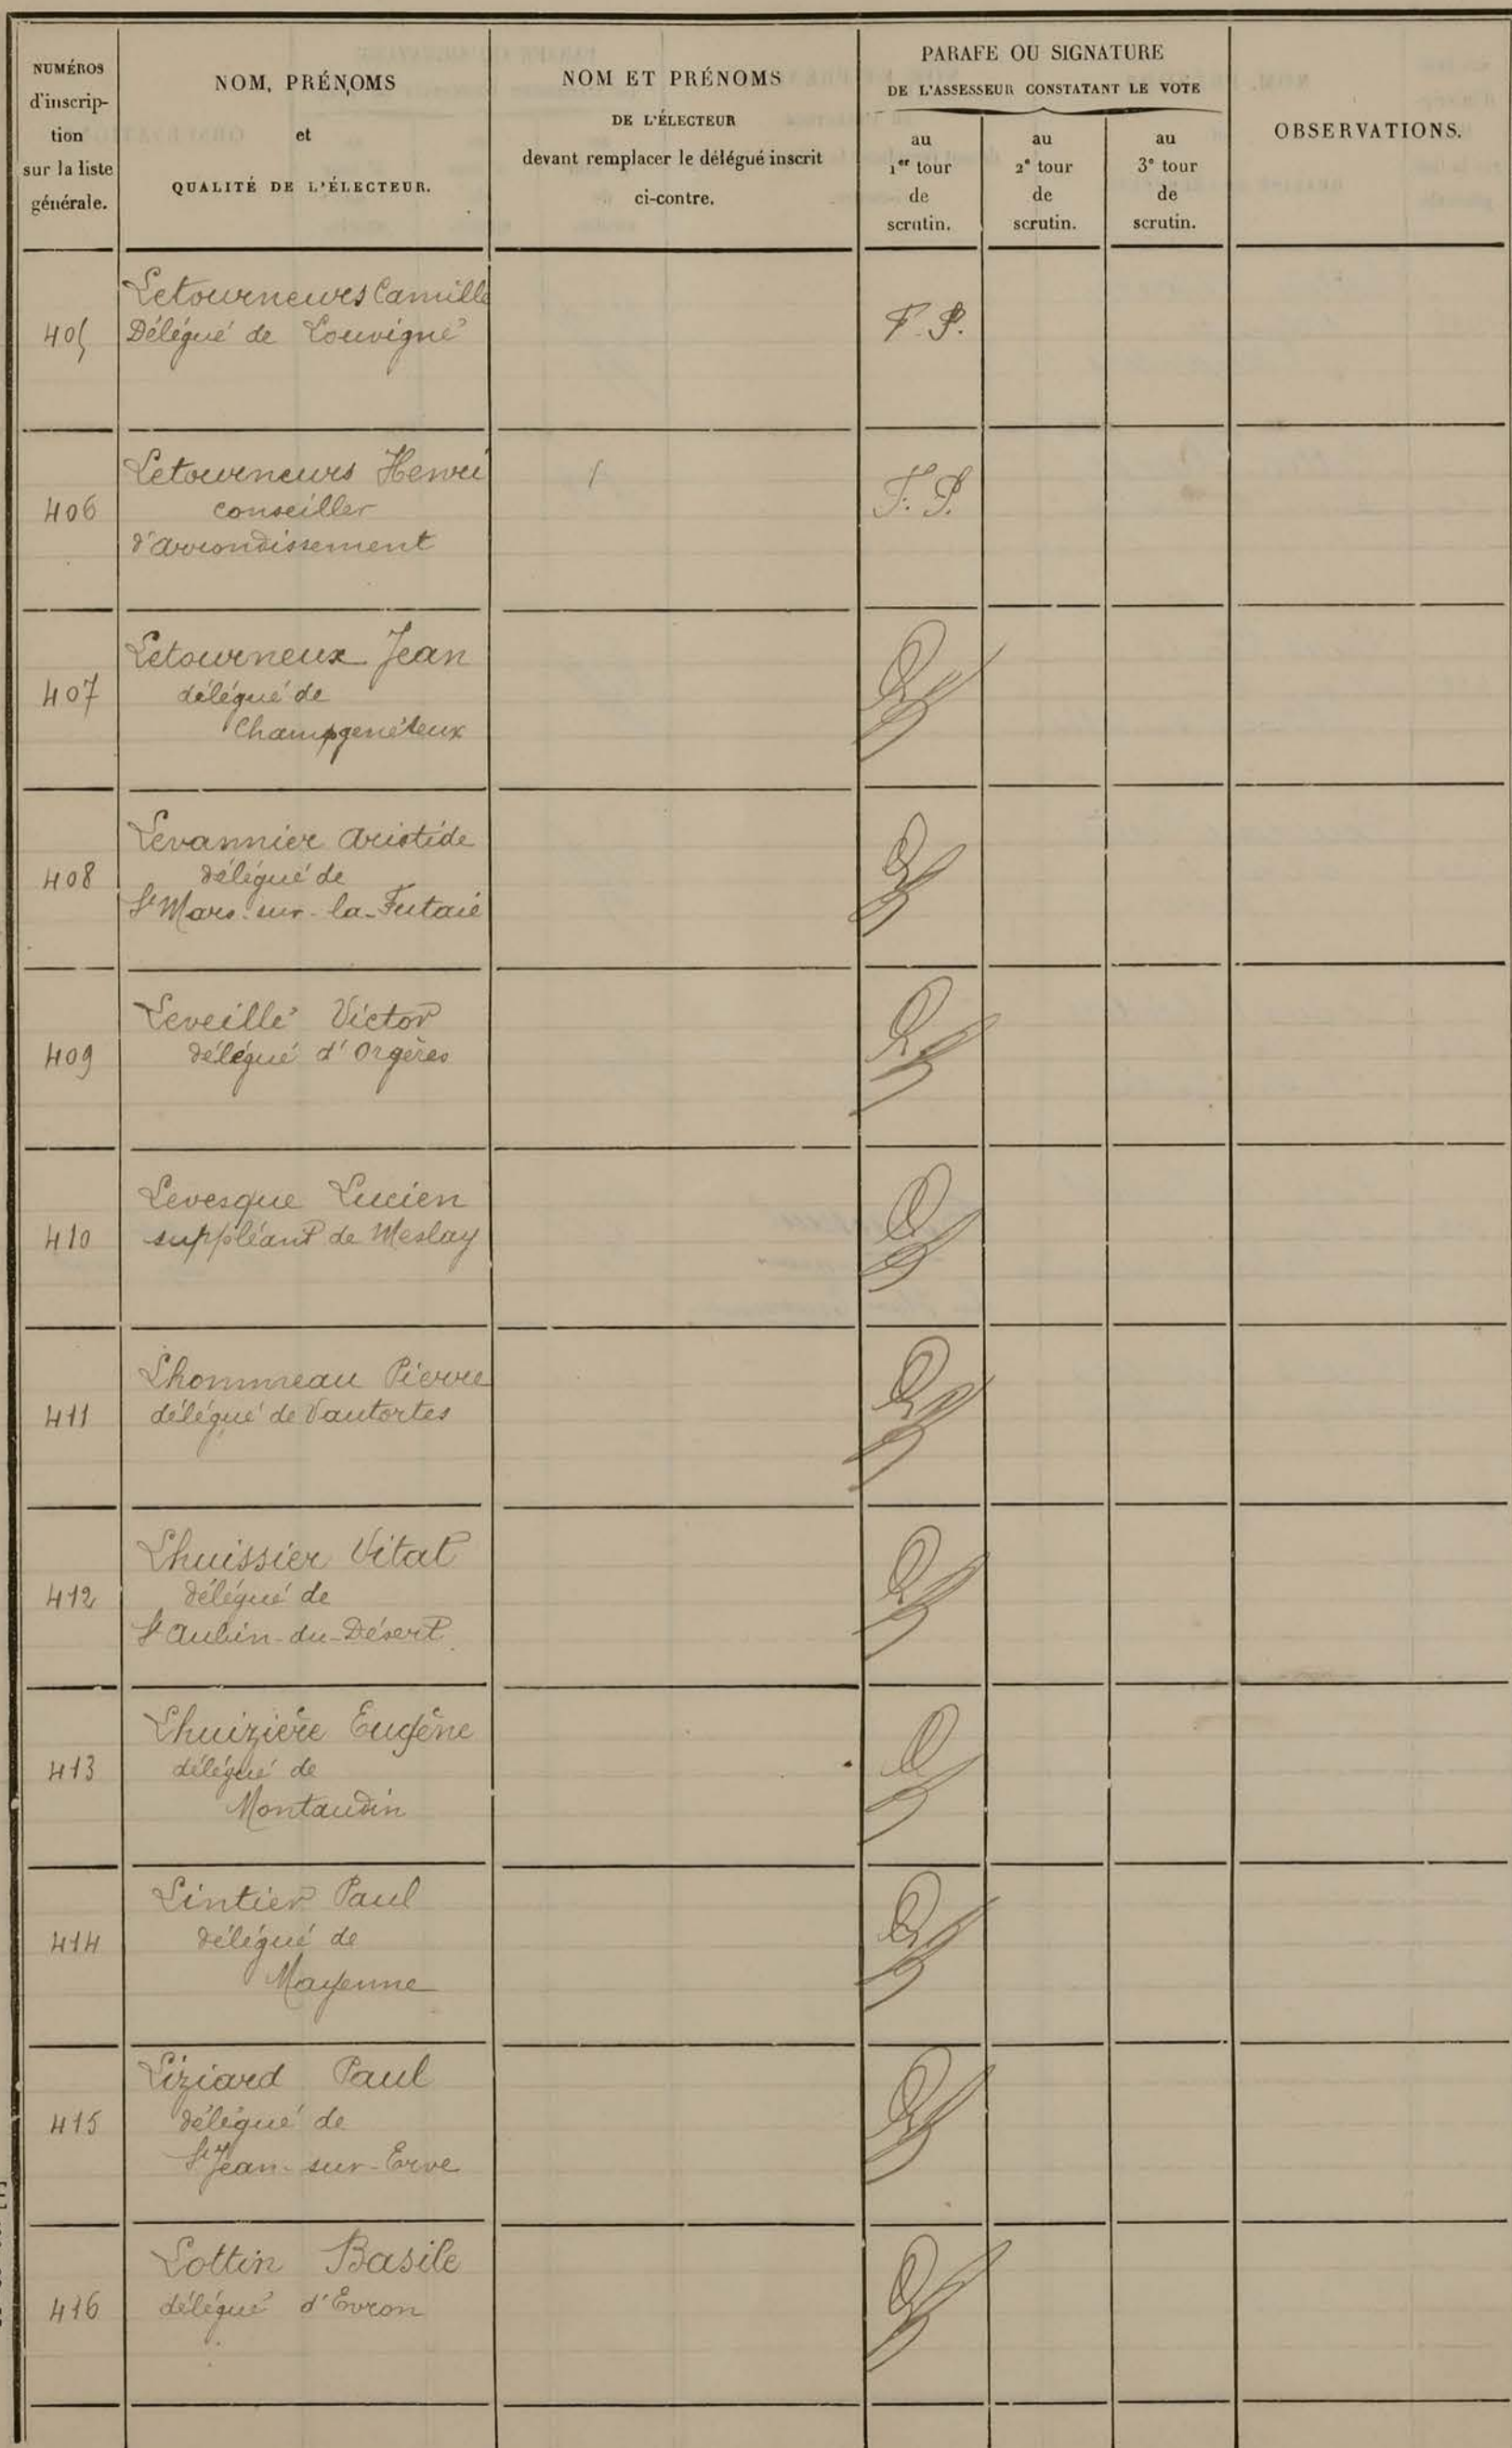 NUMÉROS
d'inscrip-
tion
sur la liste
générale.
NOM, PRÉNOMS
et
QUALITÉ DE L'ÉLECTEUR.
NOM ET PRÉNOMS
DE L'ÉLECTEUR
devant remplacer le délégué inscrit
ci-contre.
PARAFE OU SIGNATURE
DE L'ASSESSEUR CONSTATANT LE VOTE
au
1er tour
de
scrutin.
au
2e tour
de
scrutin.
au
3e tour
de
scrutin.
OBSERVATIONS.
Letourneurs Camille
405 Délégué de Louvigné F. P.
Letourneurs Henri
406 conseiller F. P.
d'arrondissement
Letourneux Jean
407 délégué de
Champgenéteux
Levannier Aristide
408 délégué de
St Mars-sur-la-Futaie
Leveillé Victor
409 délégué d'Orgères
Levesque Lucien
410 suppléant de Meslay
Lhommeau Pierre
411 délégué de Vautortes
Lhuissier Vital
412 délégué de
St Aubin-du-Désert
Lhuizière Eugène
413 délégué de
Montaudin
Lintier Paul
414 délégué de
Mayenne
Liziard Paul
415 délégué de
St Jean-sur-Erve
Lottin Basile
416 délégué d'Evron